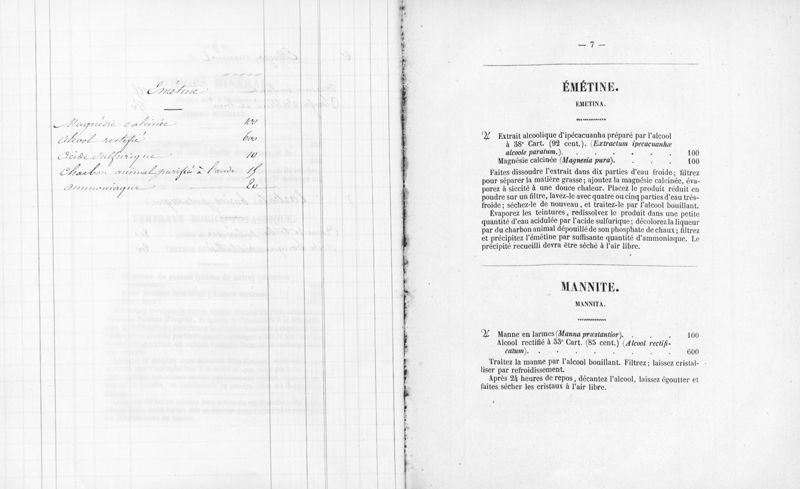 Emétine
Magnésie calcinée 100
Alcool rectifié 600
Acide sulfurique 10
Charbon animal purifié à l'acide 15
Ammoniaque 20
— 7 —
ÉMÉTINE.
EMETINA.
Extrait alcoolique d'ipécacuanha préparé par l'alcool
à 38e Cart. (92 cent.). (Extractum ipecacuanhæ
alcoole paratum.). . . . . . . 100
Magnésie calcinée (Magnesia pura). . . . 100
Faites dissoudre l'extrait dans dix parties d'eau froide; filtrez
pour séparer la matière grasse; ajoutez la magnésie calcinée, éva-
porez à siccité à une douce chaleur. Placez le produit réduit en
poudre sur un filtre, lavez-le avec quatre ou cinq parties d'eau très-
froide; séchez-le de nouveau, et traitez-le par l'alcool bouillant.
Évaporez les teintures, redissolvez le produit dans une petite
quantité d'eau acidulée par l'acide sulfurique; décolorez la liqueur
par du charbon animal dépouillé de son phosphate de chaux; filtrez
et précipitez l'émétine par suffisante quantité d'ammoniaque. Le
précipité recueilli devra être séché à l'air libre.
MANNITE.
MANNITA.
Manne en larmes (Manna præstantior). . . . 100
Alcool rectifié à 33e Cart. (85 cent.) (Alcool rectifi-
catum). . . . . . . . . 600
Traitez la manne par l'alcool bouillant. Filtrez; laissez cristal-
liser par refroidissement.
Après 24 heures de repos, décantez l'alcool, laissez égoutter et
faites sécher les cristaux à l'air libre.